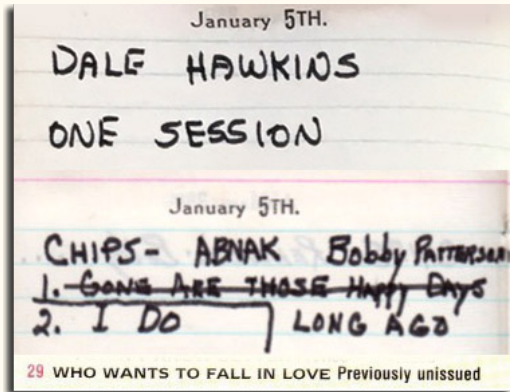 January 5TH.
DALE HAWKINS
ONE SESSION
January 5TH.
CHIPS- ABNAK Bobby PATTERSON
1. GONE ARE THOSE HAPPY DAYS
2. I DO LONG AGO
29 WHO WANTS TO FALL IN LOVE Previously unissued